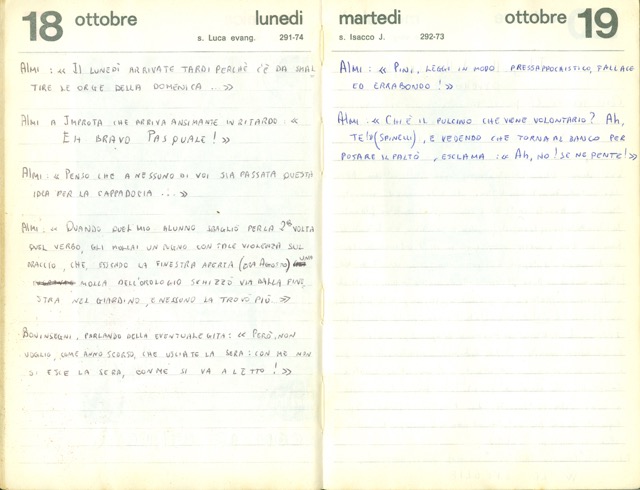 18 ottobre lunedi
s. Luca evang. 291-74
ALMI: « IL LUNEDÌ ARRIVATE TARDI PERCHÈ C'È DA SMAL
TIRE LE ORGE DELLA DOMENICA ... »
ALMI A IMPROTA CHE ARRIVA ANSIMANTE IN RITARDO: «
EH BRAVO PASQUALE! »
ALMI: « PENSO CHE A NESSUNO DI VOI SIA PASSATA QUESTA
IDEA PER LA CAPPADOCIA ... »
ALMI: « QUANDO QUEL MIO ALUNNO SBAGLIÒ PER LA 2ª VOLTA
QUEL VERBO, GLI MOLLAI UN PUGNO CON TALE VIOLENZA SUL
BRACCIO, CHE, ESSENDO LA FINESTRA APERTA (ERA AGOSTO) UNA
MOLLA DELL'OROLOGIO SCHIZZÒ VIA DALLA FINE
STRA NEL GIARDINO, E NESSUNO LA TROVÒ PIÙ. »
BONINSEGNI, PARLANDO DELLA EVENTUALE GITA: « PERÒ, NON
VOGLIO, COME ANNO SCORSO, CHE USCIATE LA SERA: CON ME NON
SI ESCE LA SERA, CON ME SI VA A LETTO! »
martedi ottobre 19
s. Isacco J. 292-73
ALMI: « PINI, LEGGI IN MODO PRESSAPPOCHISTICO, FALLACE
ED ERRABONDO! »
ALMI: « CHI È IL PULCINO CHE VIENE VOLONTARIO? AH,
TE!» (SPINELLI), E VEDENDO CHE TORNA AL BANCO PER
POSARE IL PALTÒ, ESCLAMA: « AH, NO! SE NE PENTE! »